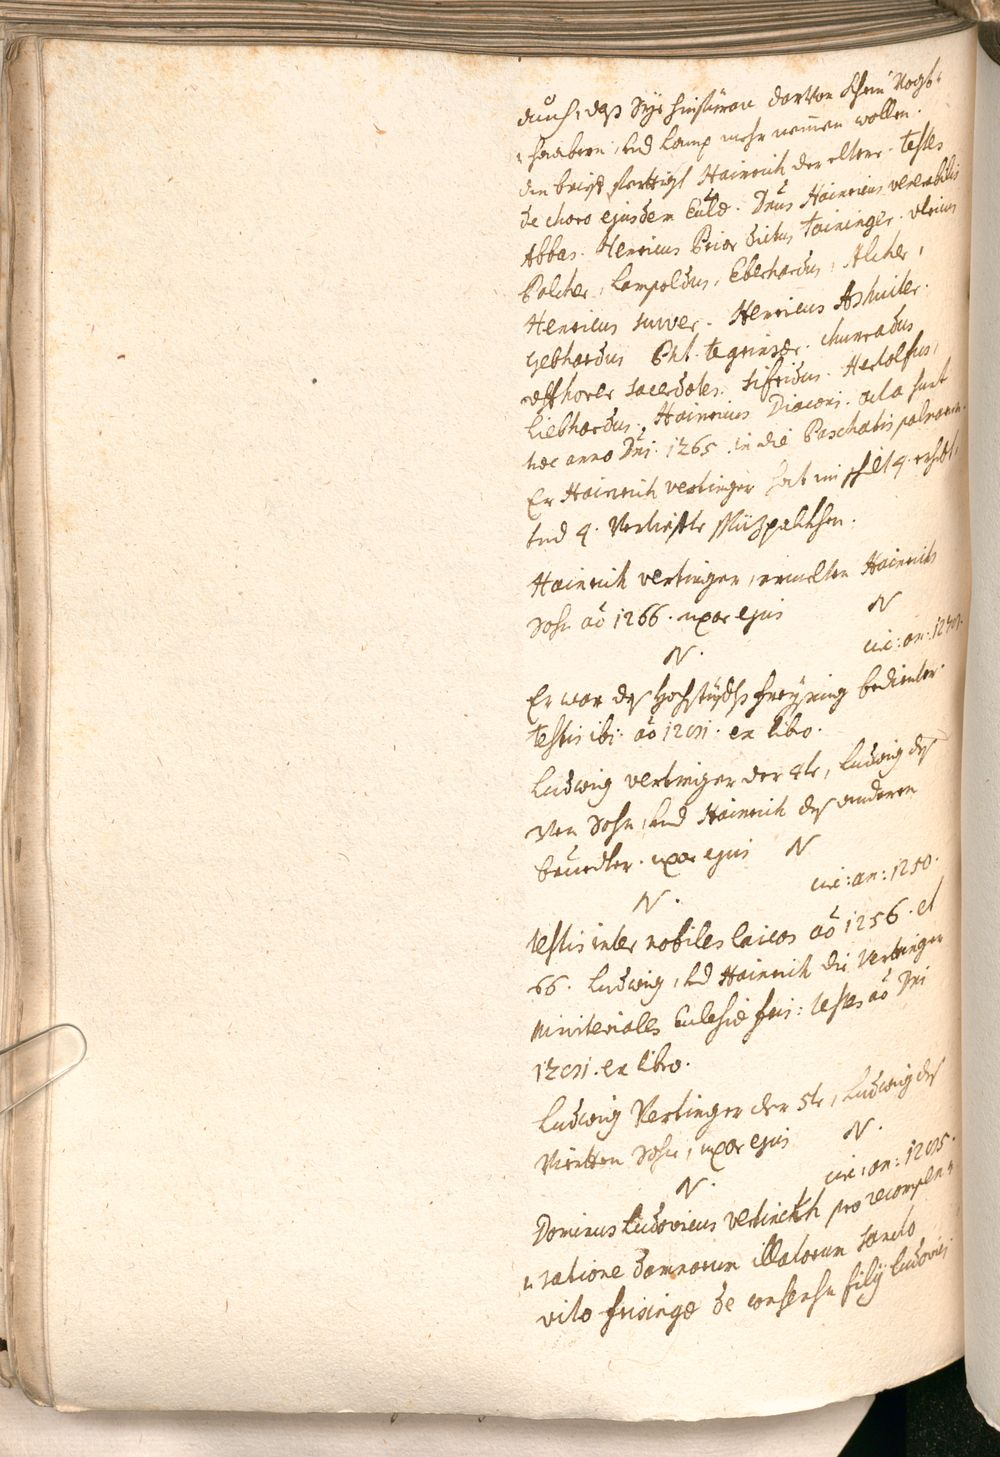 auch, das Sye hinfüran darvon khein Vogt-
haabern, und Lamp mehr nemen wollen.
den brief förttigt Hainrich der elter. testes
de choro ejusdem Eccl͞e. Dn͞us Hainricus venerabilis
Abbas. Henricus Prior dictus Taininger. Ulricus
Polcher, Lampoldus, Eberhardus, Alcher,
Henricus Surver. Henricus Ashuiler.
Gebhardus Pht. tegrinser. chunradus
offhover sacerdotes. Sifridus. Herlolfus,
Liebhardus, Hainricus Diaconi. acta sunt
hæc anno Dn͞i. 1265. in die Paschatis palmarum.
Er Hainrich vertinger hat im schilt 4. erhebt,
und 4. Vertiefte Spizpalkhen.
Hainrich vertinger, ermelten Hainrichs
Sohn aõ 1266. uxor ejus N
N. circ: an: 1270.
Er war des Hochstüffts Freysing bedienter.
testis ibi aõ 1291. ex libro.
Ludwig vertinger der 4te, Ludwig des
3ten Sohn, und Hainrich des anderen
brueder. uxor ejus N
N. circ: an: 1250.
testis inter nobiles laicos aõ 1256. et
66. Ludwig, und Hainrich die Vertinger
Ministeriales Ecclesiæ fris: testes aõ Dn͞i
1291. ex libro.
Ludwig Vertinger der 5te, Ludwig des
Viertten Sohn, uxor ejus N.
N. circ: an: 1295.
Dominus Ludovicus vertinch pro recompen-
satione damnorum illatorum Sancto
vito frisingæ de consensu filij Ludovici